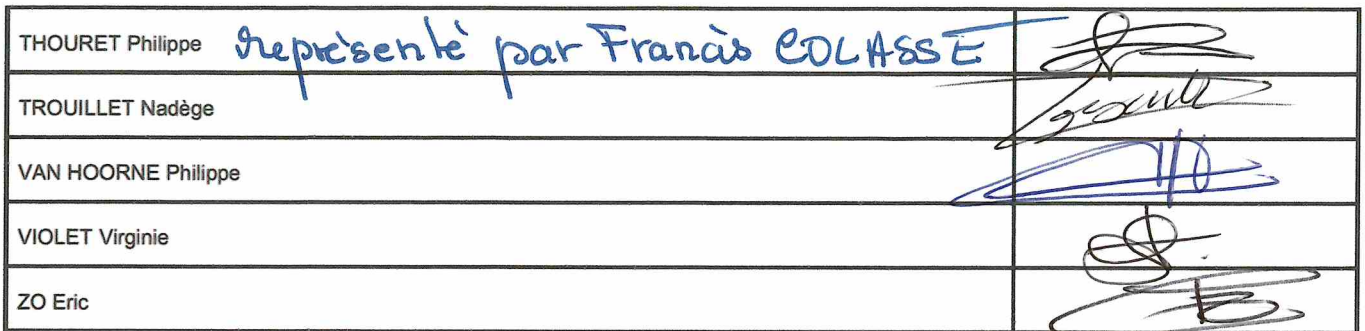 THOURET Philippe représenté par Francis COLASSE
TROUILLET Nadège
VAN HOORNE Philippe
VIOLET Virginie
ZO Eric